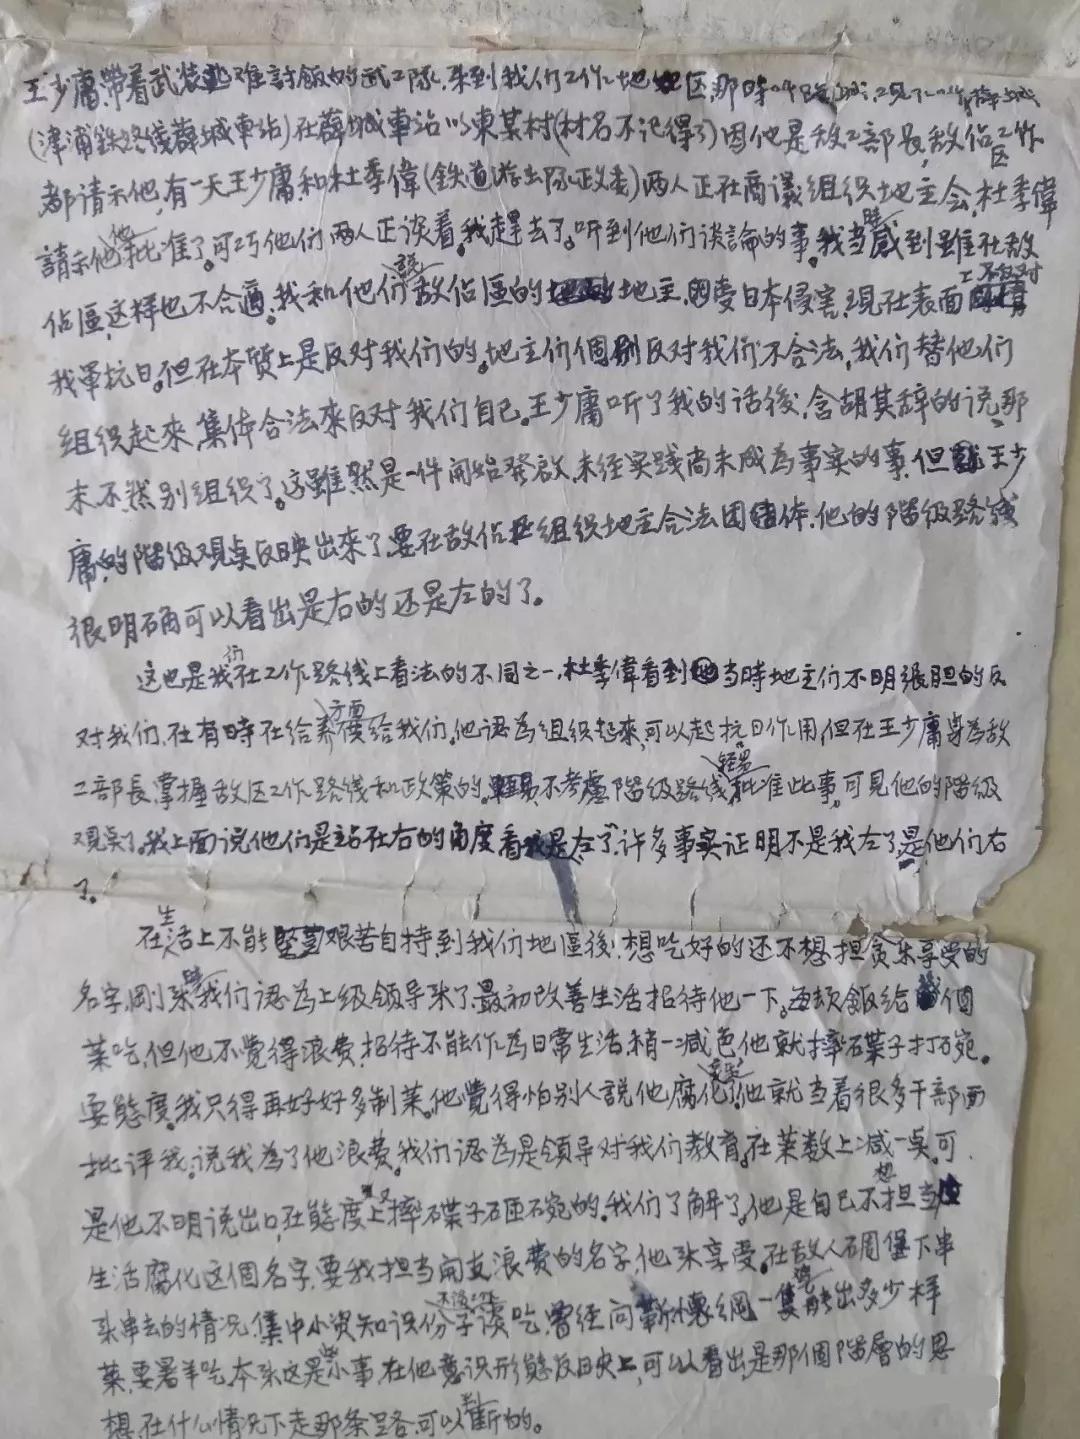 王少庸带着武装逃难討飯的武工隊来到我们工作地区,那時
(津浦鉄路线薛城車站)在薛城車站以東某村(村名不记得了)因他是敌工部長,敌佔区工作
都请示他,有一天王少庸和杜季偉(鉄道游击隊政委)两人正在商议组织地主会,杜季偉
請示他他批准了。可巧他们两人正谈着。我趕去了。听到他们谈論的事。我当時感到雖在敌
佔區这样也不合適。我和他们説敌佔區的地主,因受日本侵害,現在表面上不反对
我軍抗日。但在本质上是反对我们的。地主们個别反对我们不合法,我们替他们
组织起來,集体合法來反对我们自己。王少庸听了我的话後,含胡其辞的说,那
末不然别组织了。这雖然是一件開始發啟,未经实践尚未成為事实的事,但王少
庸的階级观点反映出来了,要在敌佔区组织地主合法团体,他的階级路线
很明确可以看出是右的还是左的了。
这也是我们在工作路线上看法的不同之一,杜季偉看到当時地主们不明張胆的反
对我们,在有時在给养方面给我们。他認為组织起来,可以起抗日作用,但在王少庸身為敌
工部長,掌握敌区工作路线和政策的。不考慮階级路线,轻易批准此事,可見他的階级
观点了。我上面说他们是站在右的角度看我是左了,许多事实证明不是我左了,是他们右
了。
在生活上不能堅苦艰苦自持到我们地區後,想吃好的还不想担贪乐享受的
名字,剛来時我们認為上级领导来了,最初改善生活招待他一下。每顿飯给個
菜吃,但他不覺得浪费,招待不能作為日常生活,稍一减色,他就摔碟子打碗。
耍態度。我只得再好好多制菜。他覺得怕别人説他腐化,他就当着很多干部面
批评我。说我為了他浪费。我们認為是领导对我们教育。在菜数上减一点,可
是他不明说出口,在態度上又摔碟子砸碗的。我们了解了。他是自己不想担当
生活腐化这個名字,要我担当開支浪费的名字,他来享受。在敌人碉堡下串
来串去的情况,集中小资知识份子谈吃,曾经问靳懷綱一隻鸡能出多少样
菜,要署羊吃,本来这是小事,在他意识形態反映上,可以看出是那個階層的思
想,在什么情况下走那条路,可以判断的。